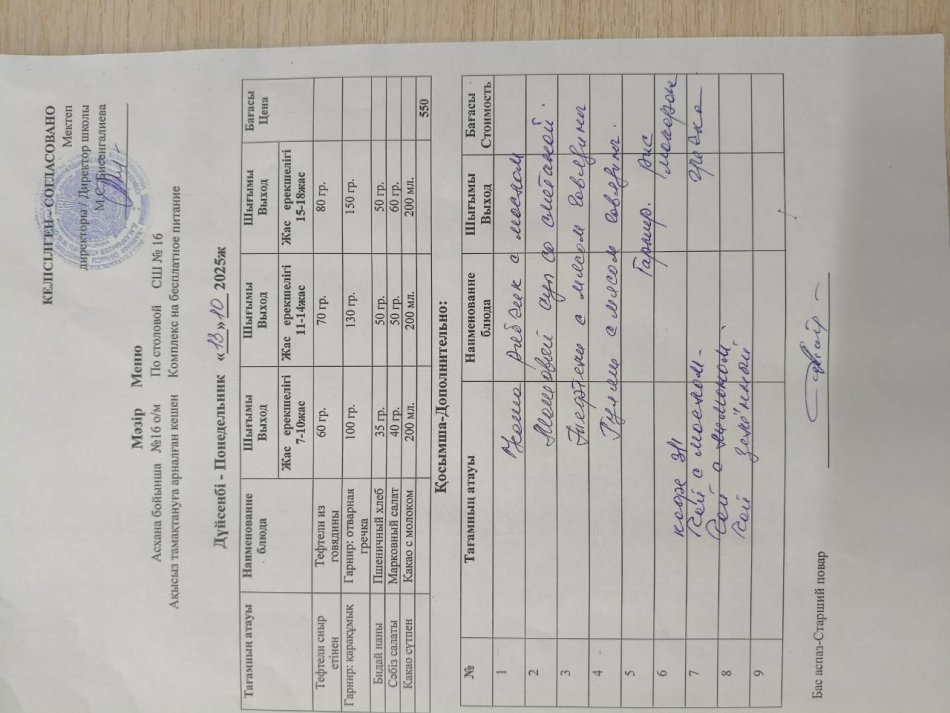 КЕЛІСІЛГЕН - СОГЛАСОВАНО
Мектеп
директоры / Директор школы
М.С. Бисенгалиева
Мәзір Меню
Асхана бойынша №16 о/м По столовой СШ № 16
Ақысыз тамақтануға арналған кешен Комплекс на бесплатное питание
Дүйсенбі - Понедельник «13» 10 2025ж
Тағамның атауы Наименование блюда Шығымы Выход Шығымы Выход Шығымы Выход Бағасы Цена
Жас ерекшелігі 7-10жас Жас ерекшелігі 11-14жас Жас ерекшелігі 15-18жас
Тефтели сиыр етінен Тефтели из говядины 60 гр. 70 гр. 80 гр.
Гарнир: қарақұмық Гарнир: отварная гречка 100 гр. 130 гр. 150 гр.
Бидай наны Пшеничный хлеб 35 гр. 50 гр. 50 гр.
Сәбіз салаты Марковный салат 40 гр. 50 гр. 60 гр.
Какао сүтпен Какао с молоком 200 мл. 200 мл. 200 мл.
550
Қосымша-Дополнительно:
№ Тағамның атауы Наименование блюда Шығымы Выход Бағасы Стоимость
1 с маслом
2 суп со сметаной.
3 с мясом говядины
4 с мясом говядины.
5 Гарнир. рис
6 макарон
7 чай с молоком. гречка
8 чай с лимоном.
9 чай зелённый
Бас аспаз-Старший повар